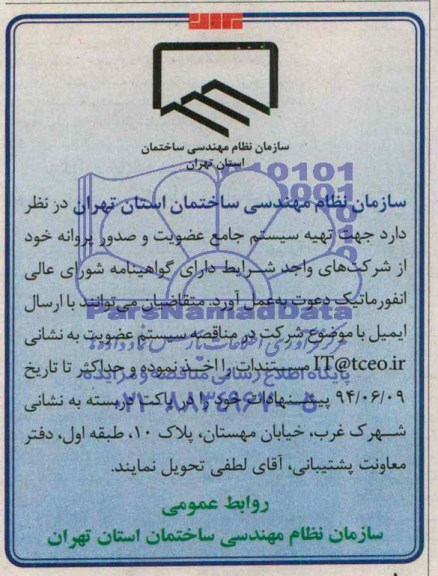 سازمان نظام مهندسی ساختمان
استان تهران
سازمان نظام مهندسی ساختمان استان تهران در نظر
دارد جهت تهیه سیستم جامع عضویت و صدور پروانه خود
از شرکت‌های واجد شرایط دارای گواهینامه شورای عالی
انفورماتیک دعوت به‌عمل آورد. متقاضیان می‌توانند با ارسال
ایمیل با موضوع شرکت در مناقصه سیستم عضویت به نشانی
IT@tceo.ir مستندات را اخذ نموده و حداکثر تا تاریخ
۹۴/۰۶/۰۹ پیشنهادات خود را در پاکت دربسته به نشانی
شهرک غرب، خیابان مهستان، پلاک ۱۰، طبقه اول، دفتر
معاونت پشتیبانی، آقای لطفی تحویل نمایند.
روابط عمومی
سازمان نظام مهندسی ساختمان استان تهران
ParsNamadData
پایگاه اطلاع رسانی مناقصه و مزایده